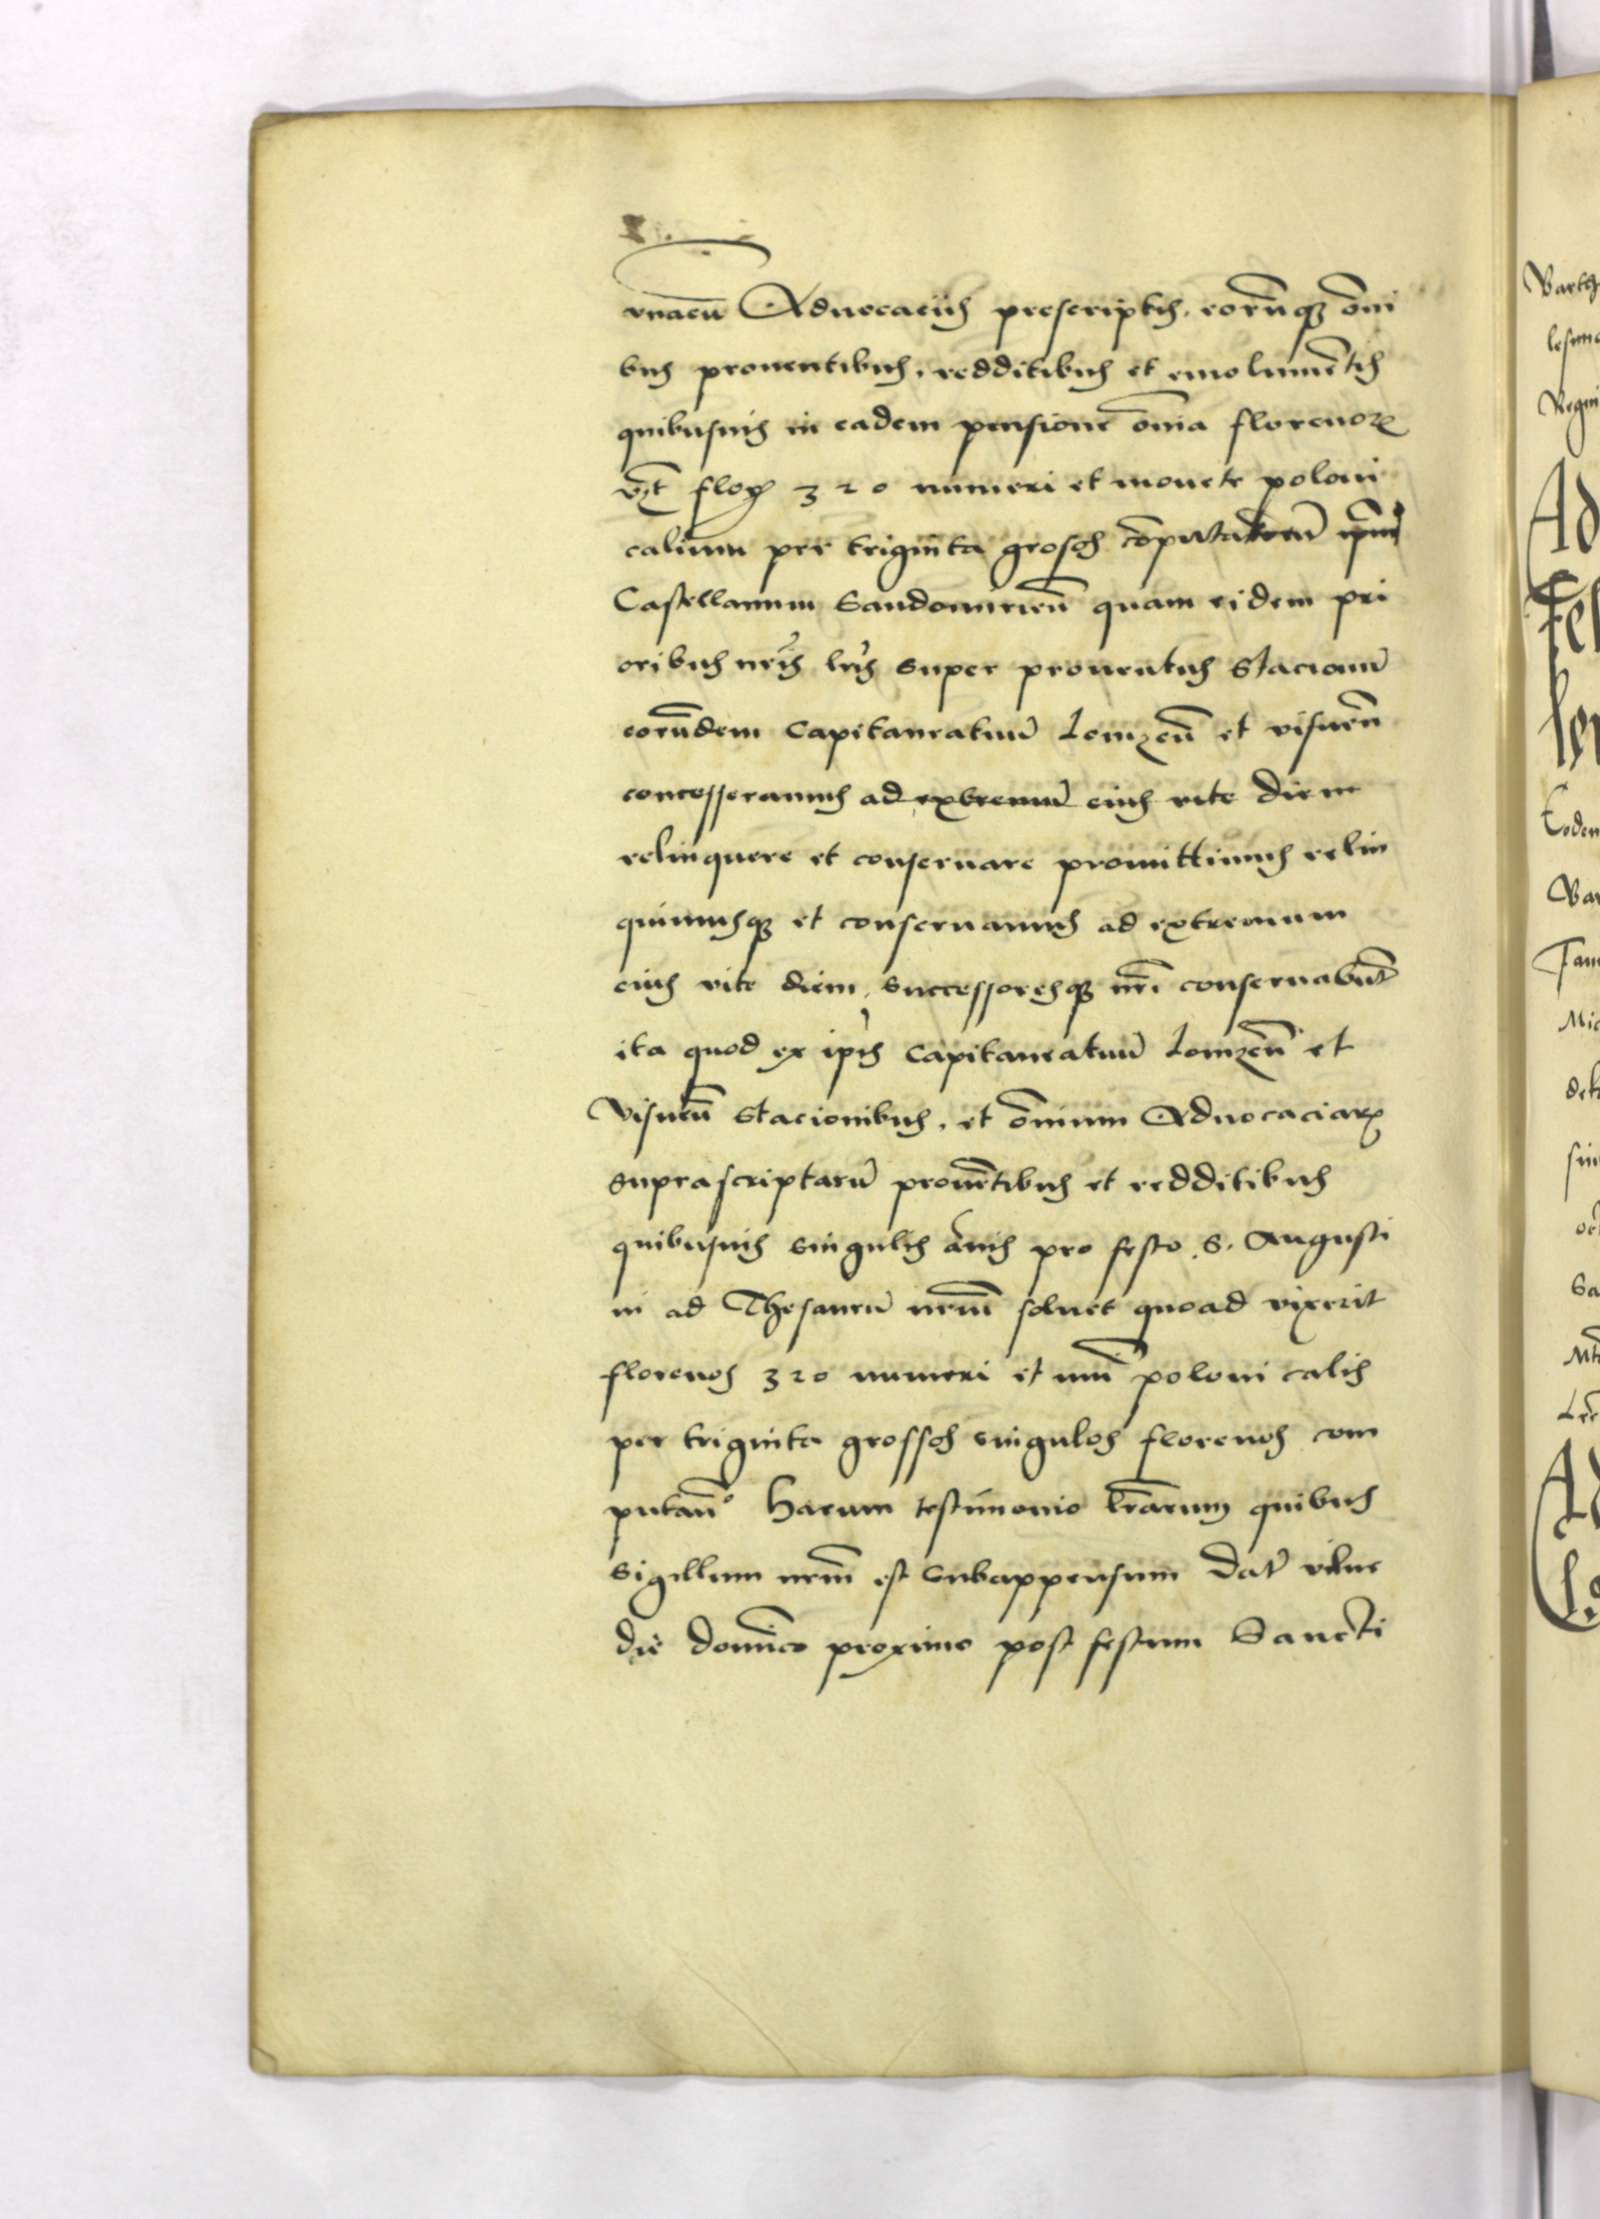 vnacu̅ Aduocaciis prescriptis, eoru̅qꝫ o̅ni
bus prouentibus, redditibus et emolume̅tis
quibusuis in eadem pensione o̅nia florenoꝝ
vꝫt floꝝ 320 numeri et monete poloni
calium per triginta gross co̅putatoru̅ ip̅m
Castellanum Sandomirien̅ quam eidem pri
oribus nr̅is lr̅is super prouentus Stacionu̅
eoru̅dem Capitaneatuu̅ Lomzen̅ et visnen̅
concesseramus ad extremu̅ eius vite diem
relinquere et conseruare promittimus relin
quimusqꝫ et conseruamus ad extremum
eius vite diem, Successoresqꝫ nr̅i conseruabu̅t
ita quod ex ip̅is Capitaneatuu̅ Lomzen̅ et
Visnen̅ Stacionibus, et o̅nium Aduocaciaꝝ
suprascriptaru̅ proue̅tibus et redditibus
quibusuis singulis a̅nis pro festo S. Augusti
ni ad Thesauru̅ nr̅um soluet quoad vixerit
florenos 320 numeri et mo̅n poloni calis
per triginta grossos singulos florenos com
putan̅o Harum testimonio lr̅arum quibus
sigillum nr̅m est subappensum Dat̅ vilne
die domi̅co proximo post festum Sancti